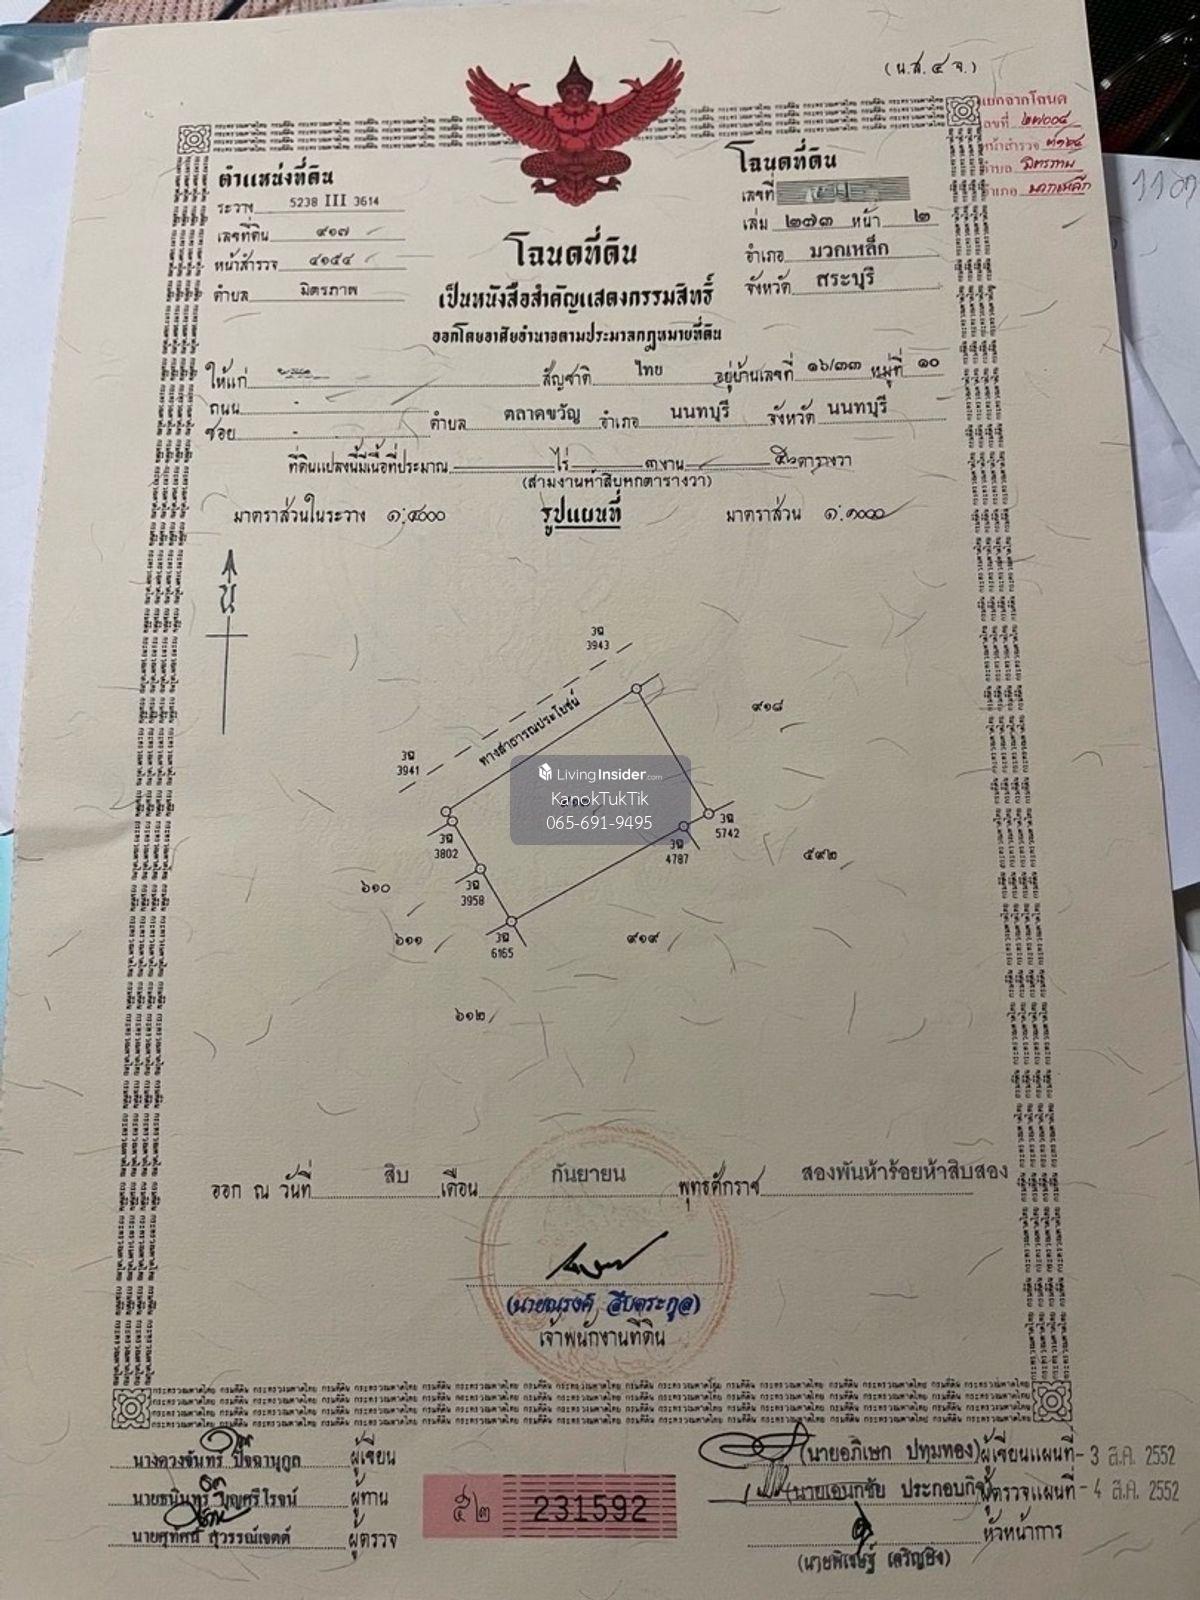 (น.ส.๔ จ.)
แยกจากโฉนด
เลขที่ ๒๗๐๐๘
หน้าสำรวจ
ตำบล มิตรภาพ
อำเภอ มวกเหล็ก
ตำแหน่งที่ดิน
ระวาง 5238 III 3614
เลขที่ดิน ๙๑๗
หน้าสำรวจ ๔๑๕๔
ตำบล มิตรภาพ
โฉนดที่ดิน
เลขที่
เล่ม ๒๗๓ หน้า ๒
อำเภอ มวกเหล็ก
จังหวัด สระบุรี
โฉนดที่ดิน
เป็นหนังสือสำคัญแสดงกรรมสิทธิ์
ออกโดยอาศัยอำนาจตามประมวลกฎหมายที่ดิน
ให้แก่ สัญชาติ ไทย อยู่บ้านเลขที่ ๑๖/๓๓ หมู่ที่ ๑๐
ถนน -
ซอย - ตำบล ตลาดขวัญ อำเภอ นนทบุรี จังหวัด นนทบุรี
ที่ดินแปลงนี้มีเนื้อที่ประมาณ ไร่ ๓ งาน ๕๖ ตารางวา
(สามงานห้าสิบหกตารางวา)
มาตราส่วนในระวาง ๑:๔๐๐๐ รูปแผนที่ มาตราส่วน ๑:๑๐๐๐
น
3ฉ
3943
ทางสาธารณประโยชน์
๙๑๘
3ฉ
3941
LivingInsider.com
KanokTukTik
065-691-9495
3ฉ
5742
3ฉ
3802
3ฉ
4787
๕๙๒
๖๑๐
3ฉ
3958
๖๑๑
3ฉ
6165
๙๑๙
๖๑๒
ออก ณ วันที่ สิบ เดือน กันยายน พุทธศักราช สองพันห้าร้อยห้าสิบสอง
(นายณรงค์ สืบตระกูล)
เจ้าพนักงานที่ดิน
นางดวงจันทร์ ปัจฉานุกูล ผู้เขียน
นายธนินทร์ บุญศรีโรจน์ ผู้ทาน
นายศุทัศน์ สุวรรณ์เจตต์ ผู้ตรวจ
๕๒ 231592
(นายอภิเษก ปทุมทอง) ผู้เขียนแผนที่ - 3 ส.ค. 2552
(นายเอนกชัย ประกอบกิจ) ผู้ตรวจแผนที่ - 4 ส.ค. 2552
หัวหน้าการ